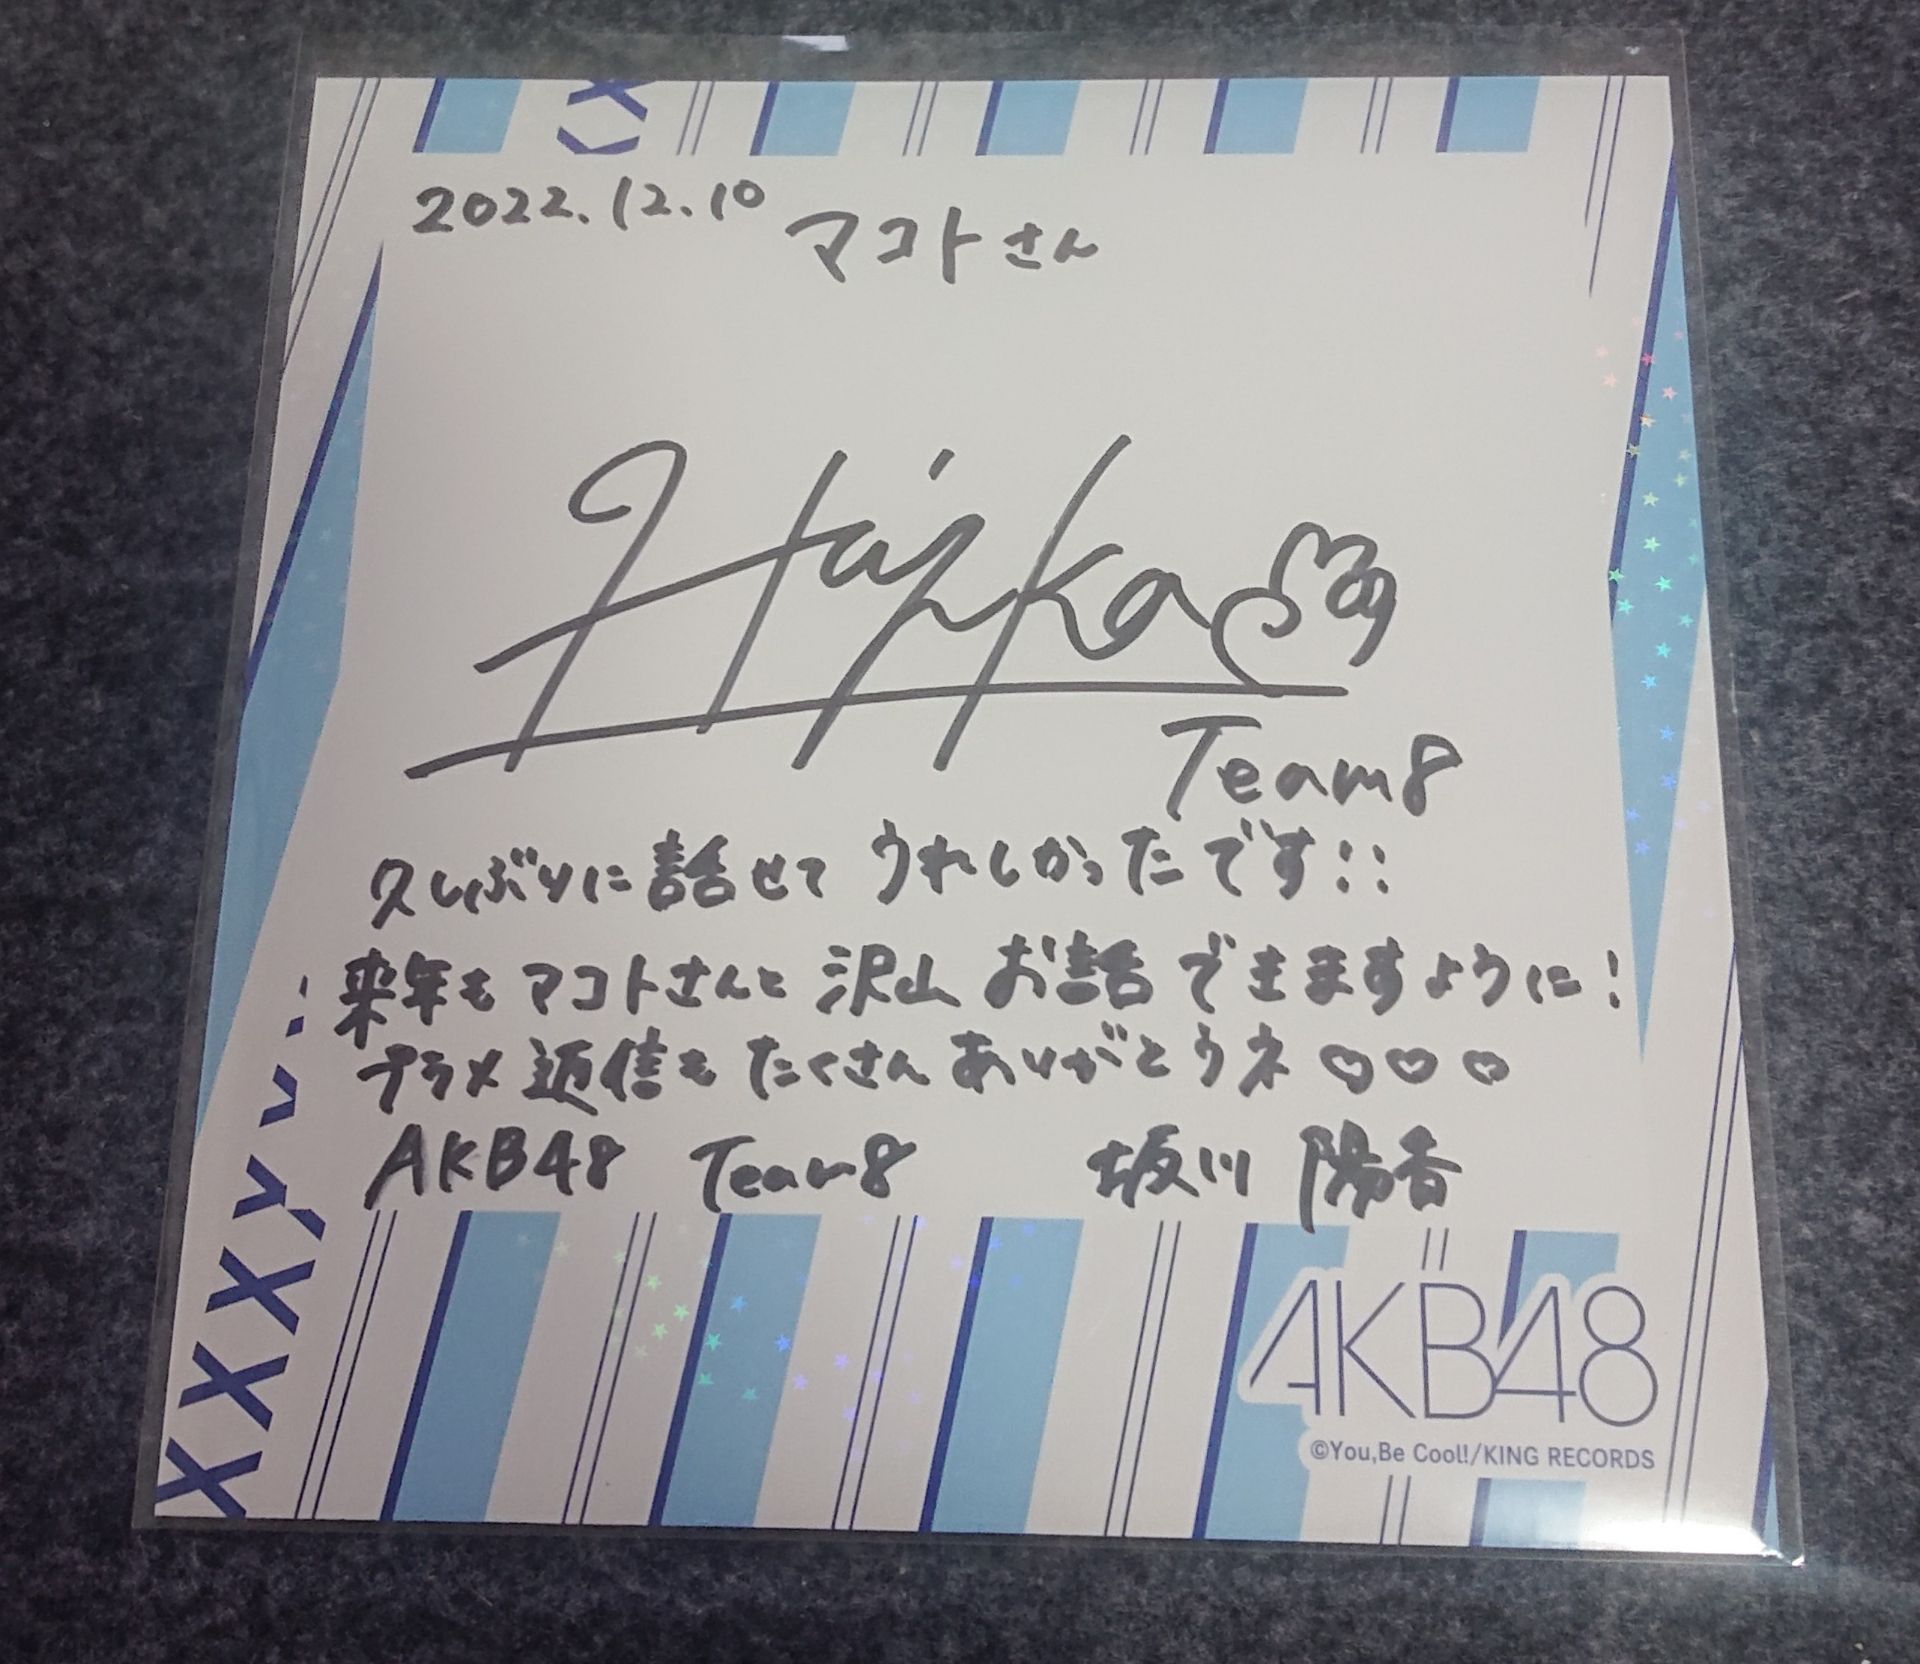 2022.12.10 マコトさん
Haruka
Team8
久しぶりに話せてうれしかったです!!
来年もマコトさんと沢山お話できますように!
プラメ返信もたくさんありがとうネ♡♡♡
AKB48 Team8 坂川 陽香
AKB48
©You,Be Cool!/KING RECORDS